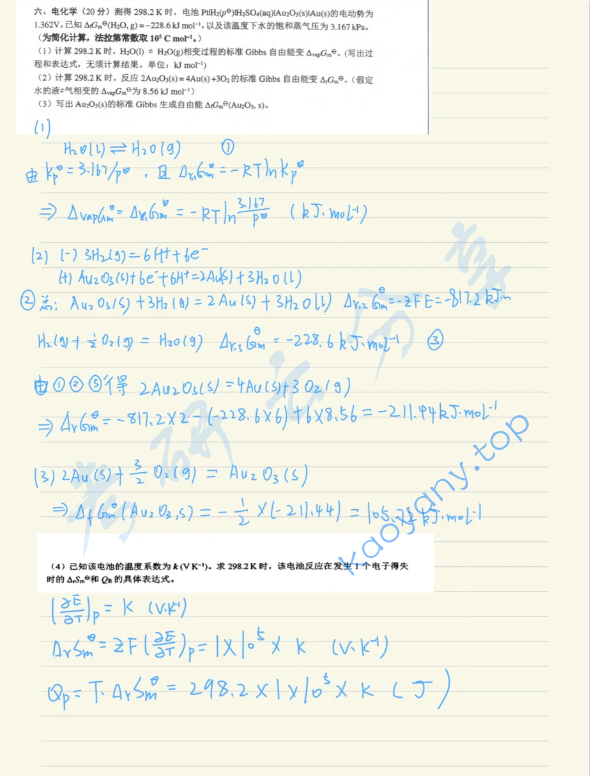 六、电化学（20 分）测得 298.2 K 时，电池 Pt|H₂(p⊖)|H₂SO₄(aq)|Au₂O₃(s)|Au(s)的电动势为
1.362V。已知 ΔfGm⊖(H₂O, g)=−228.6 kJ mol⁻¹，以及该温度下水的饱和蒸气压为 3.167 kPa。
（为简化计算，法拉第常数取 10⁵ C mol⁻¹。）
（1）计算 298.2 K 时，H₂O(l) ⇌ H₂O(g)相变过程的标准 Gibbs 自由能变 ΔvapGm⊖。（写出过
程和表达式，无须计算结果。单位：kJ mol⁻¹）
（2）计算 298.2 K 时，反应 2Au₂O₃(s)＝4Au(s)+3O₂ 的标准 Gibbs 自由能变 ΔrGm⊖。（假定
水的液÷气相变的 ΔvapGm⊖为 8.56 kJ mol⁻¹）
（3）写出 Au₂O₃(s)的标准 Gibbs 生成自由能 ΔfGm⊖(Au₂O₃, s)。
(1)
H₂O(l) ⇌ H₂O(g) ①
由 Kp⊖=3.167/p⊖ ，且 Δr,1Gm⊖=-RTlnKp⊖
⇒ ΔvapGm⊖=Δr,1Gm⊖=-RTln 3.167/p⊖ (kJ·mol⁻¹)
(2) (-) 3H₂(g)=6H⁺+6e⁻
(+) Au₂O₃(s)+6e⁻+6H⁺=2Au(s)+3H₂O(l)
② 总: Au₂O₃(s)+3H₂(g)=2Au(s)+3H₂O(l) Δr,2Gm⊖=-zFE=-817.2kJ·m
H₂(g)+½O₂(g)=H₂O(g) Δr,3Gm⊖=-228.6kJ·mol⁻¹ ③
由①②③得 2Au₂O₃(s)=4Au(s)+3O₂(g)
⇒ ΔrGm⊖=-817.2×2-(-228.6×6)+6×8.56=-211.44kJ·mol⁻¹
(3) 2Au(s)+3/2O₂(g)=Au₂O₃(s)
⇒ ΔfGm⊖(Au₂O₃,s)=-½×(-211.44)=105.72kJ·mol⁻¹
（4）已知该电池的温度系数为 k (V K⁻¹)。求 298.2 K 时，该电池反应在发生 1 个电子得失
时的 ΔrSm⊖和 QR 的具体表达式。
(∂E/∂T)p=K (V·K⁻¹)
ΔrSm⊖=ZF(∂E/∂T)p=1×10⁵×K (V·K⁻¹)
Qp=T·ΔrSm⊖=298.2×1×10⁵×K (J)
考研考分享
kaoyany.top